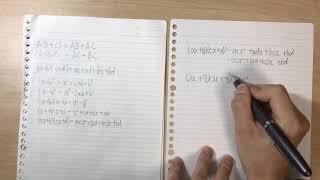 A(B+C) = AB+AC
(A+B)C = AC+BC
(a+b)(c+d) = ac+ad+bc+bd
(a+b)² = a²+2ab+b²
(a-b)² = a²-2ab+b²
(a+b)(a-b) = a²-b²
(x+a)(x+b) = x²+(a+b)x+ab
(ax+b)(cx+d) = acx²+(ad+bc)x+bd
(ax+b)(cx+d) = acx²+adx+bcx+bd
= acx²+(ad+bc)x+bd